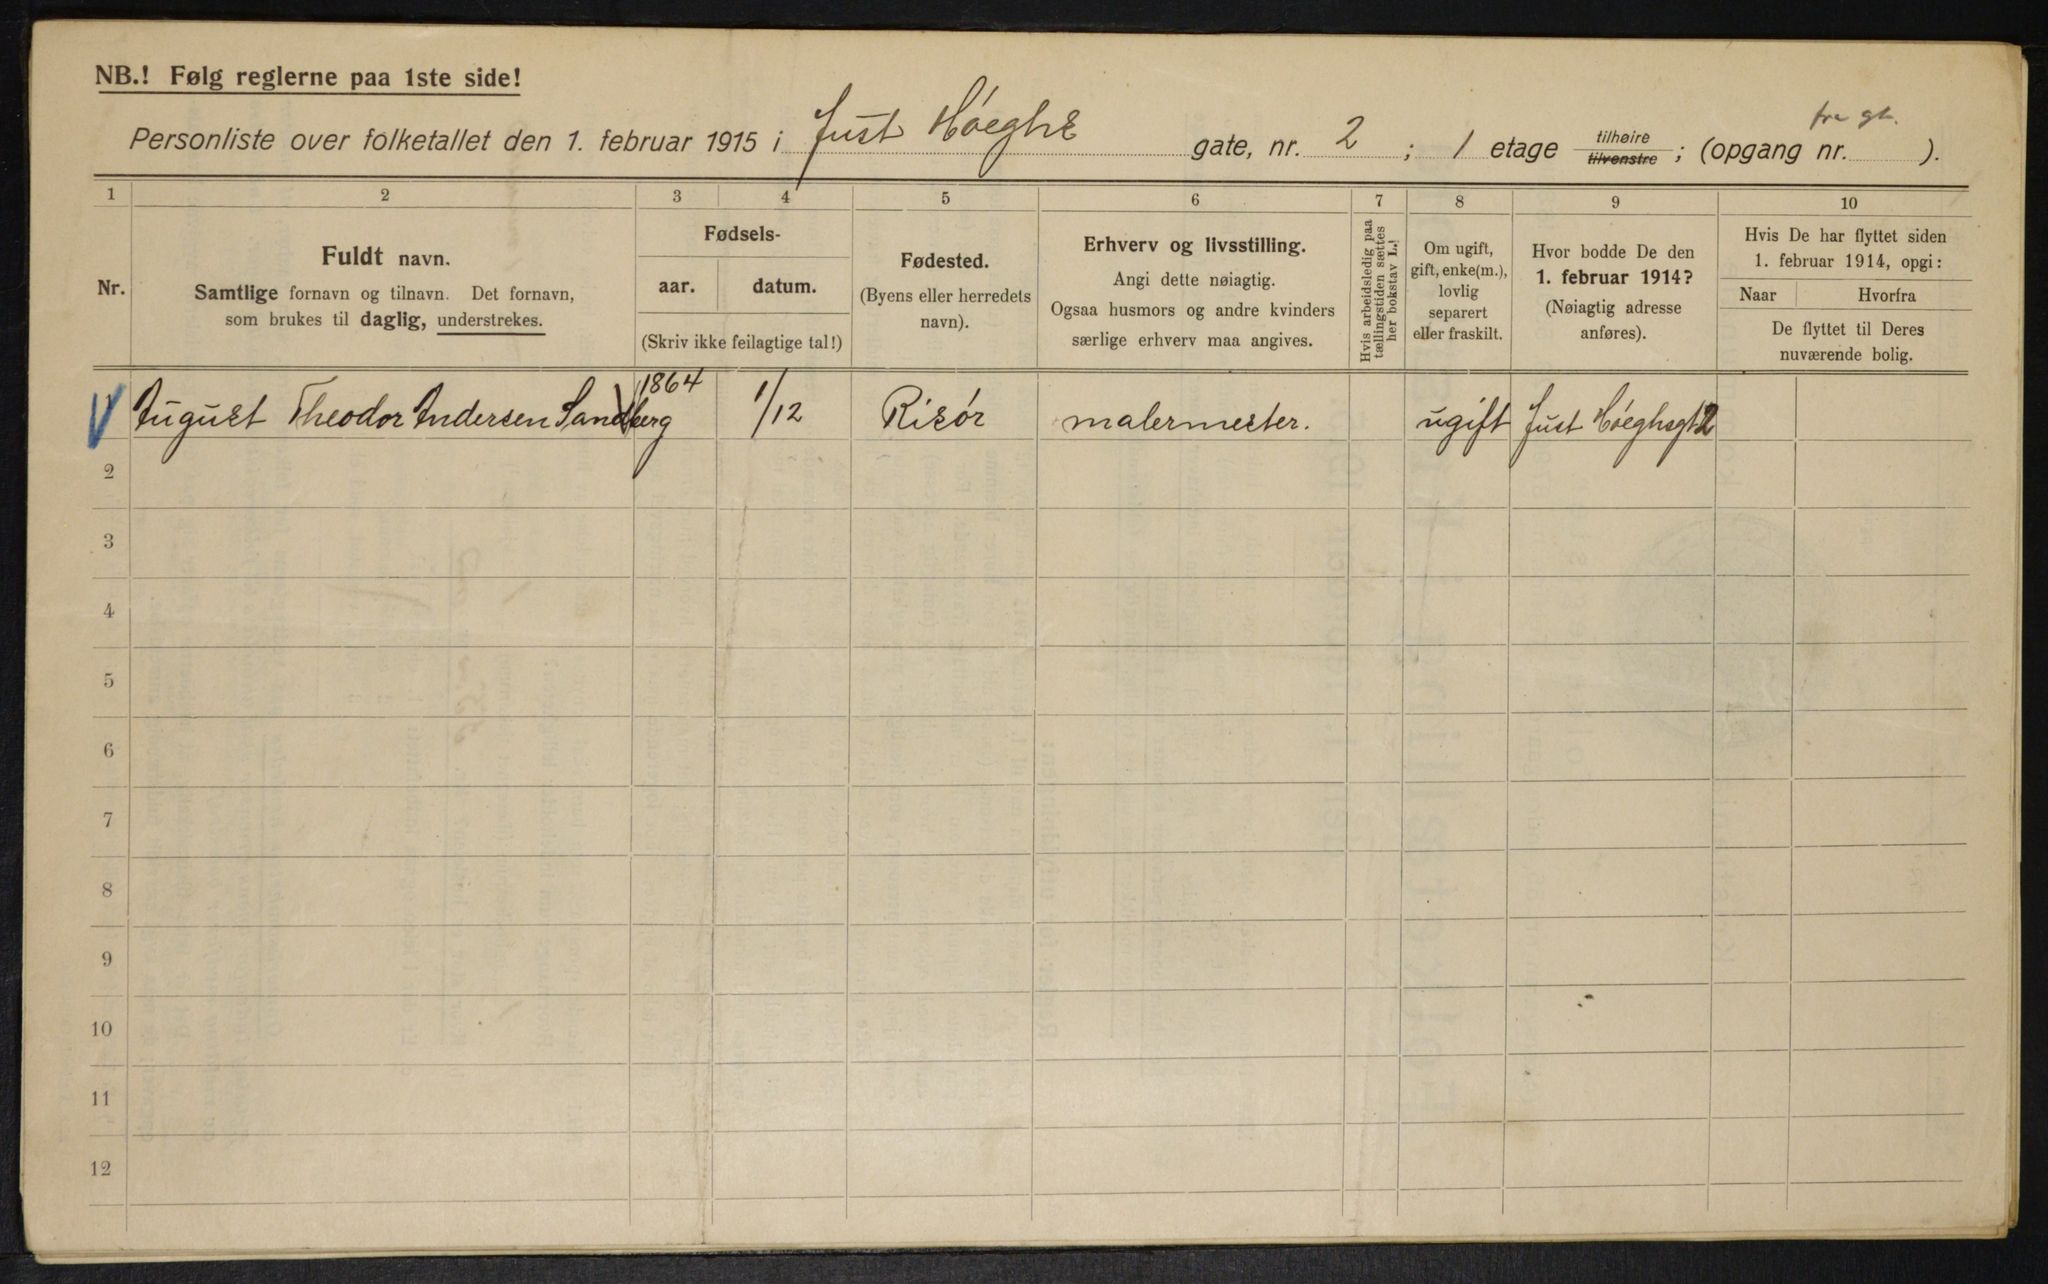 NB.! Følg reglerne paa 1ste side!
fra gt.
Personliste over folketallet den 1. februar 1915 i Just Høeghs gate, nr. 2 ; 1 etage tilhøire tilvenstre ; (opgang nr. ).
1 2 3 4 5 6 7 8 9 10
Nr.
Fuldt navn.
Samtlige fornavn og tilnavn. Det fornavn,
som brukes til daglig, understrekes.
Fødsels-
aar. datum.
(Skriv ikke feilagtige tal!)
Fødested.
(Byens eller herredets
navn).
Erhverv og livsstilling.
Angi dette nøiagtig.
Ogsaa husmors og andre kvinders
særlige erhverv maa angives.
Hvis arbeidsledig paa
tællingstiden sættes
her bokstav L.!
Om ugift,
gift, enke(m.),
lovlig
separert
eller fraskilt.
Hvor bodde De den
1. februar 1914?
(Nøiagtig adresse
anføres).
Hvis De har flyttet siden
1. februar 1914, opgi:
Naar Hvorfra
De flyttet til Deres
nuværende bolig.
1 August Theodor Andersen Sandberg 1864 1/12 Risör malermester. ugift Just Høeghsgt 2
2
3
4
5
6
7
8
9
10
11
12